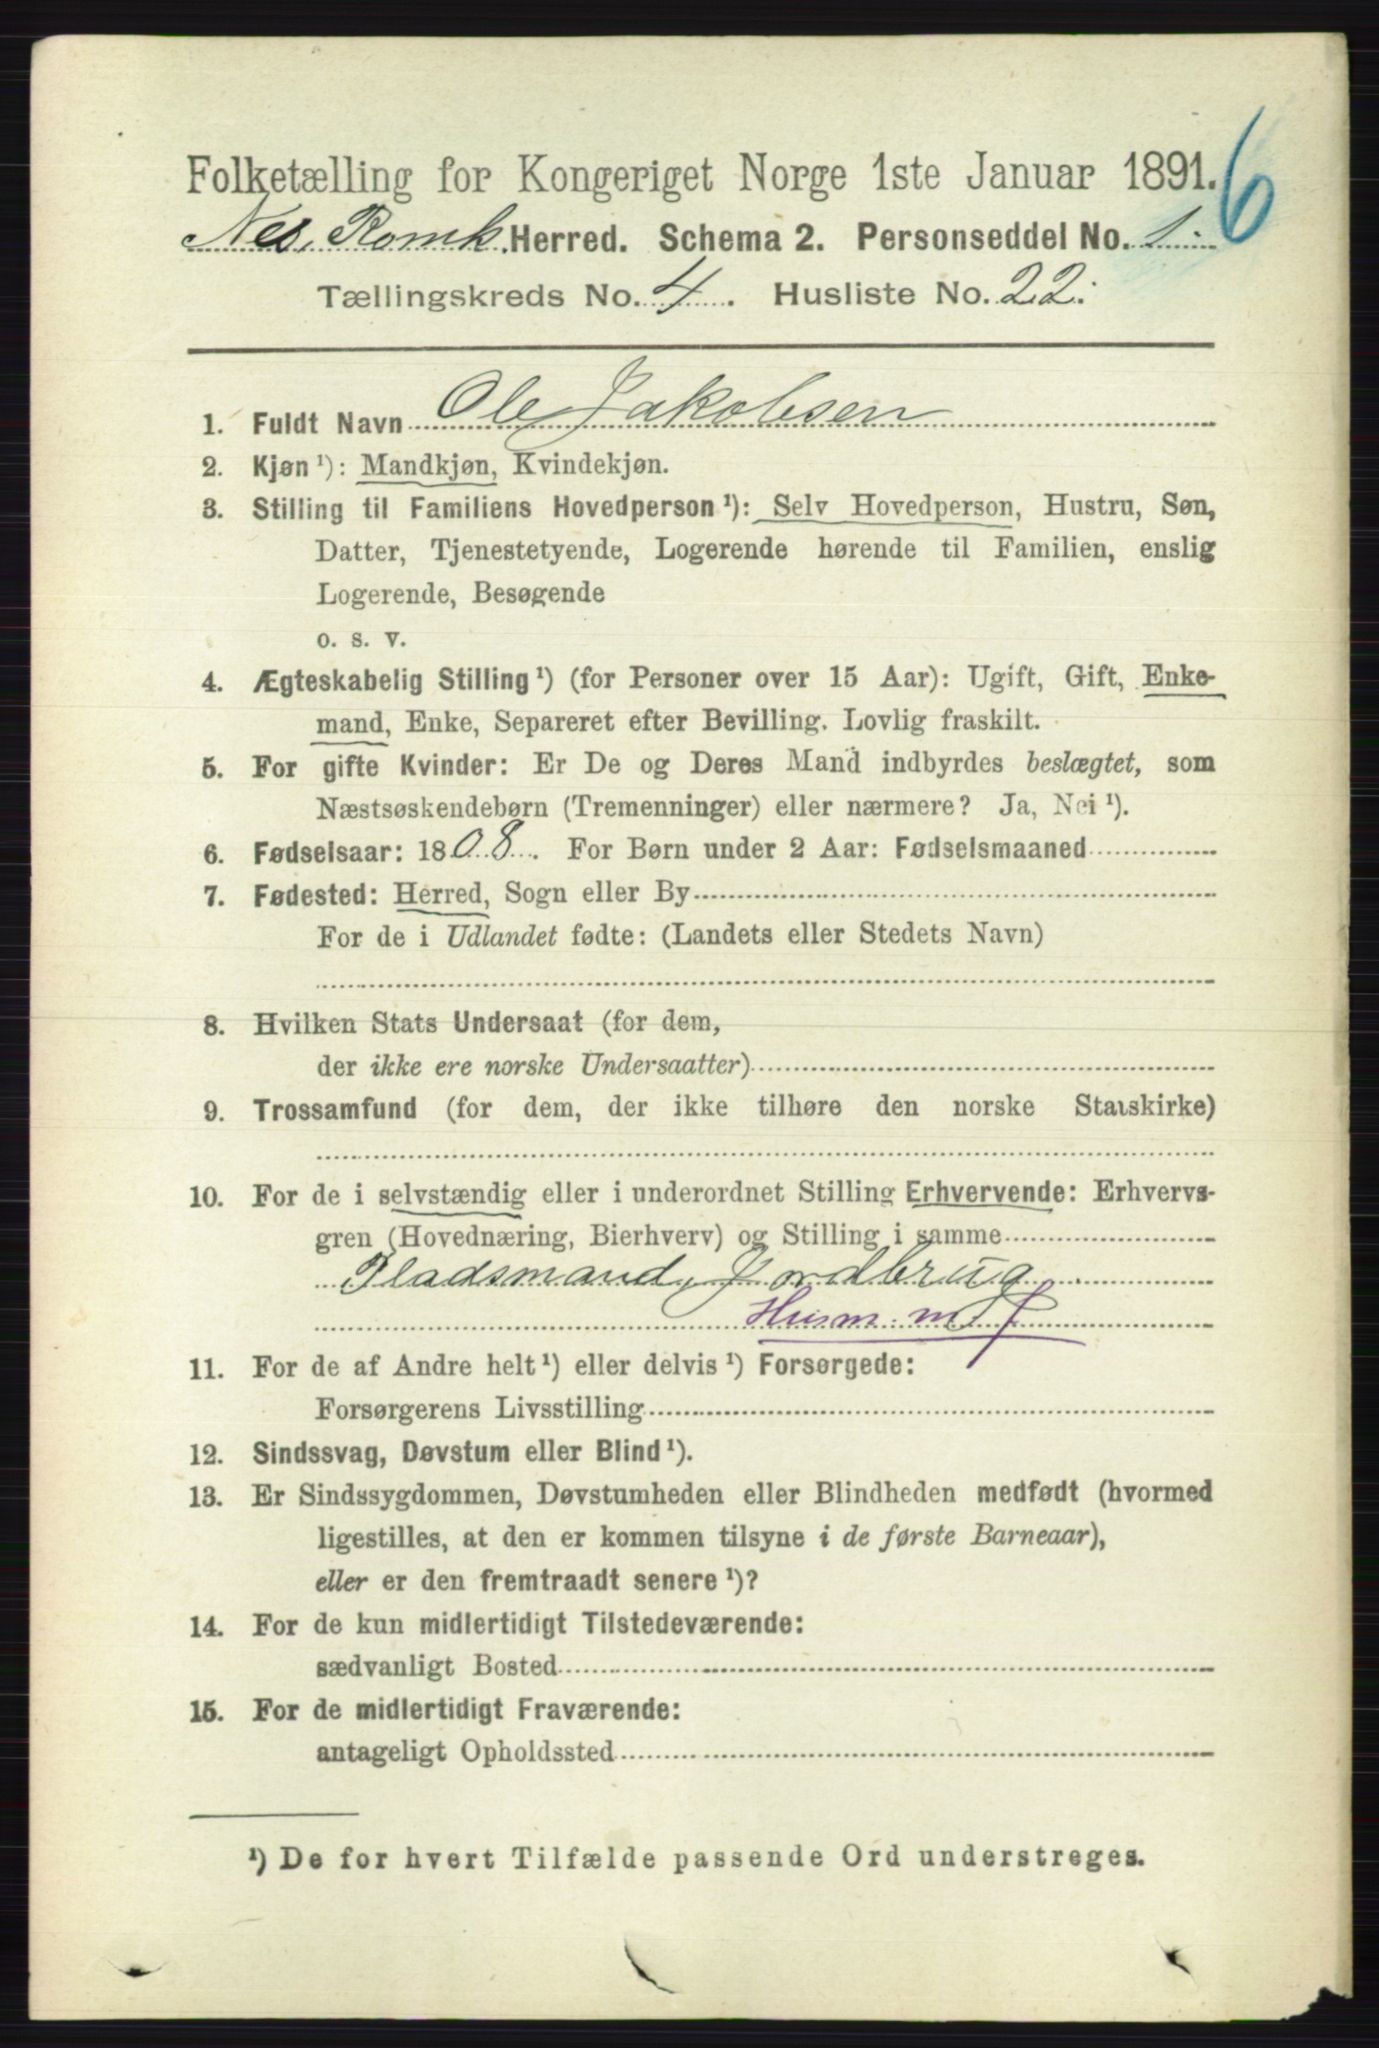 Folketælling for Kongeriget Norge 1ste Januar 1891.
6
Nes, Romk. Herred. Schema 2. Personseddel No. 1.
Tællingskreds No. 4. Husliste No. 22.
1. Fuldt Navn Ole Jakobsen
2. Kjøn ¹): Mandkjøn, Kvindekjøn.
3. Stilling til Familiens Hovedperson ¹): Selv Hovedperson, Hustru, Søn,
Datter, Tjenestetyende, Logerende hørende til Familien, enslig
Logerende, Besøgende
o. s. v.
4. Ægteskabelig Stilling ¹) (for Personer over 15 Aar): Ugift, Gift, Enke-
mand, Enke, Separeret efter Bevilling. Lovlig fraskilt.
5. For gifte Kvinder: Er De og Deres Mand indbyrdes beslægtet, som
Næstsøskendebørn (Tremenninger) eller nærmere? Ja, Nei ¹).
6. Fødselsaar: 1808. For Børn under 2 Aar: Fødselsmaaned
7. Fødested: Herred, Sogn eller By
For de i Udlandet fødte: (Landets eller Stedets Navn)
8. Hvilken Stats Undersaat (for dem,
der ikke ere norske Undersaatter)
9. Trossamfund (for dem, der ikke tilhøre den norske Statskirke)
10. For de i selvstændig eller i underordnet Stilling Erhvervende: Erhvervs-
gren (Hovednæring, Bierhverv) og Stilling i samme
Pladsmand, Jordbrug
Husm. m. J
11. For de af Andre helt ¹) eller delvis ¹) Forsørgede:
Forsørgerens Livsstilling
12. Sindssvag, Døvstum eller Blind ¹).
13. Er Sindssygdommen, Døvstumheden eller Blindheden medfødt (hvormed
ligestilles, at den er kommen tilsyne i de første Barneaar),
eller er den fremtraadt senere ¹)?
14. For de kun midlertidigt Tilstedeværende:
sædvanligt Bosted
15. For de midlertidigt Fraværende:
antageligt Opholdssted
¹) De for hvert Tilfælde passende Ord understreges.